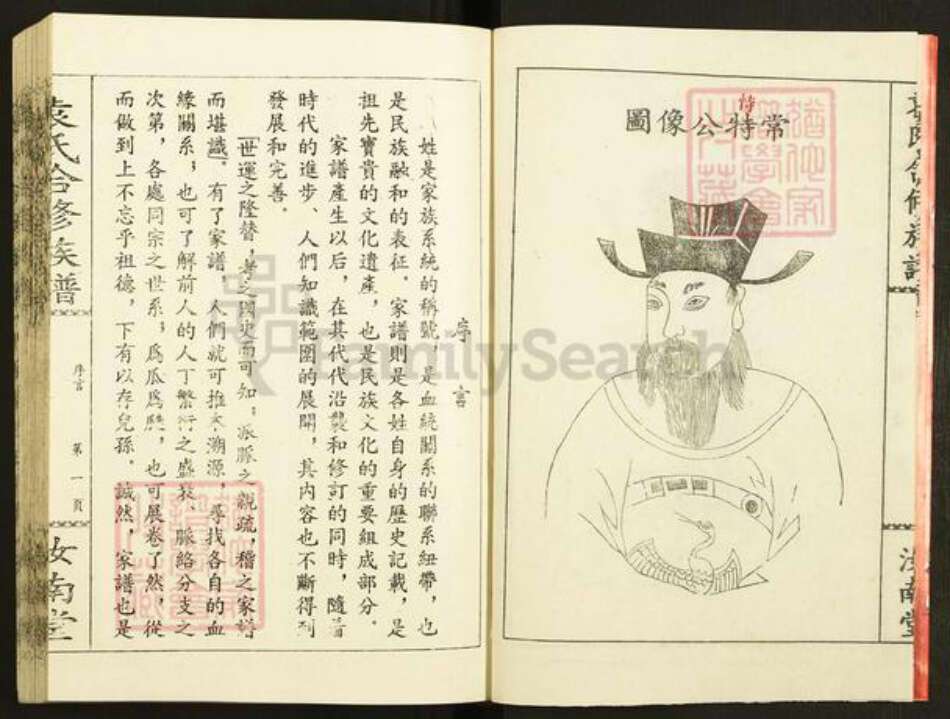 常特公像圖
特
汝南堂
序言
姓是家族系統的稱號，是血統關系的聯系紐帶，也
是民族融和的表征。家譜則是各姓自身的歷史記載，是
祖先寶貴的文化遺產，也是民族文化的重要組成部分。
家譜產生以后，在其代代沿襲和修訂的同時，隨着
時代的進步、人們知識範圍的展開，其內容也不斷得到
發展和完善。
「世運之隆替，考之國史而可知；派脈之親疏，稽之家譜
而堪識」。有了家譜，人們就可推本溯源，尋找各自的血
緣關系；也可了解前人的人丁繁衍之盛衰、脈絡分支之
次第，各處同宗之世系；爲瓜爲瓞，也可展卷了然，從
而做到上不忘乎祖德，下有以存兒孫。誠然，家譜也是
袁氏合修族譜
序言
第一頁
汝南堂
FamilySearch